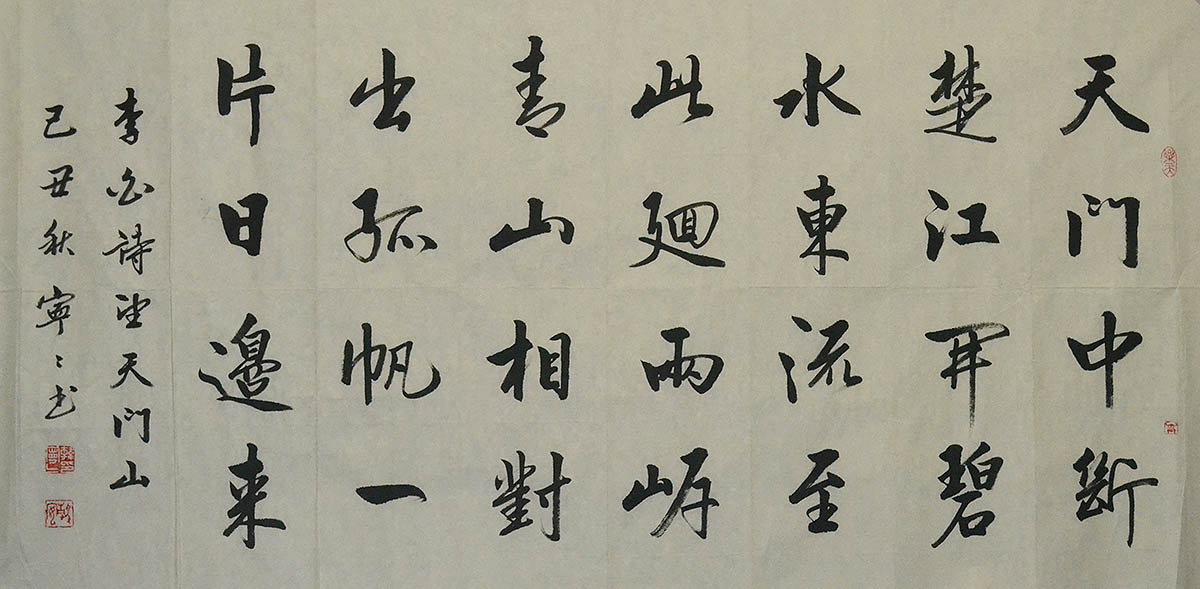 天門中斷
楚江開碧
水東流至
此廻兩岸
青山相對
出孤帆一
片日邊来
李白詩望天門山
己丑秋寧〻书